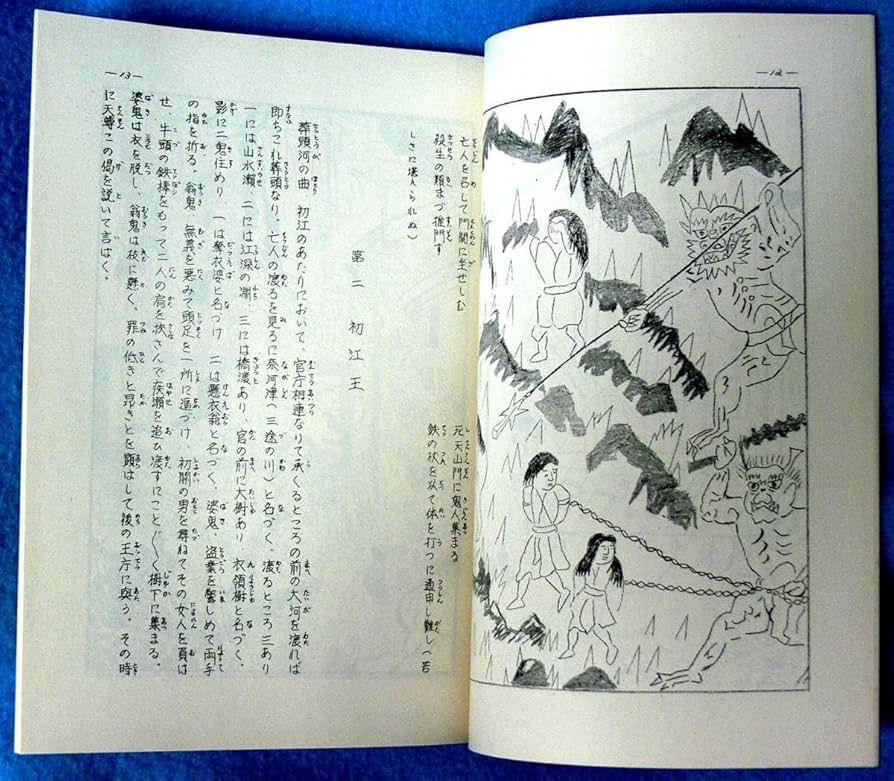 —12—
亡人を召して門関に坐せしむ
死天山門に鬼人集まる
殺生の類まづ推門す
鉄の杖を以て体を打つに通申し難し（苦
しさに堪えられぬ）
—13—
第二 初江王
葬頭河の曲 初江のあたりにおいて、官庁相連なりて承くるところの前の大河を渡れば
即ちこれ葬頭なり。亡人の渡るを見るに奈河津（三途の川）と名づく。渡るところ三あり
一には山水瀬、二には江深の淵、三には橋渡あり、官の前に大樹あり 衣領樹と名づく。
影に二鬼住めり、一は奪衣婆と名づけ 二は懸衣翁と名づく。婆鬼、盗業を誓しめて両手
の指を折る。翁鬼、無義を悪みて頭足を一所に逼づけ、初開の男を尋ねてその女人を負は
せ、牛頭の鉄棒をもって二人の肩を挟さんで疾瀬を追ひ渡すにこと〴〵く樹下に集まる。
婆鬼は衣を脱し、翁鬼は枝に懸く。罪の低きと昂きとを顕はして後の王庁に與う。その時
に天尊この偈を説いて言はく。